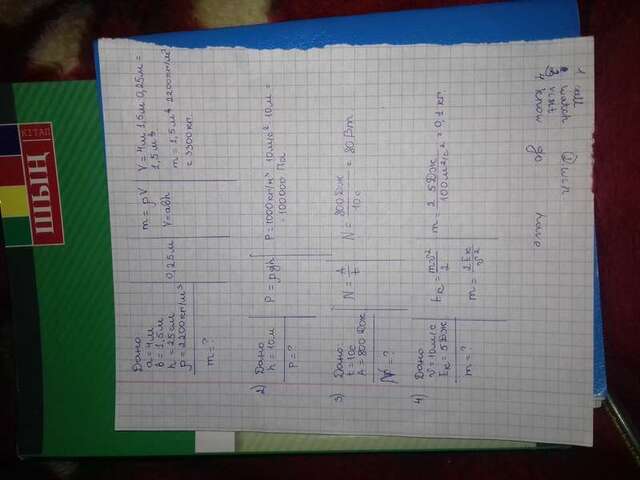 ШЫҢ
КІТАП
Дано
a = 4м
b = 1,5м
h = 25см
ρ = 2200кг/м³
m = ?
0,25м
m = ρV
V = abh
V = 4м 1,5м 0,25м =
1,5м³
m = 1,5м³ 2200кг/м³
= 3300кг.
2)
Дано
h = 10м
P = ?
P = ρgh
P = 1000кг/м³ · 10м/с² · 10м =
= 100000 Па
3)
Дано
t = 10с
A = 800Дж
N = ?
N = A/t
N = 800Дж/10с = 80Вт
4)
Дано
v = 10м/с
Eк = 5Дж
m = ?
Eк = mv²/2
m = 2Eк/v²
m = 2 5Дж/100м²/с² = 0,1 кг.
1 all
watch
visit
4 know
go